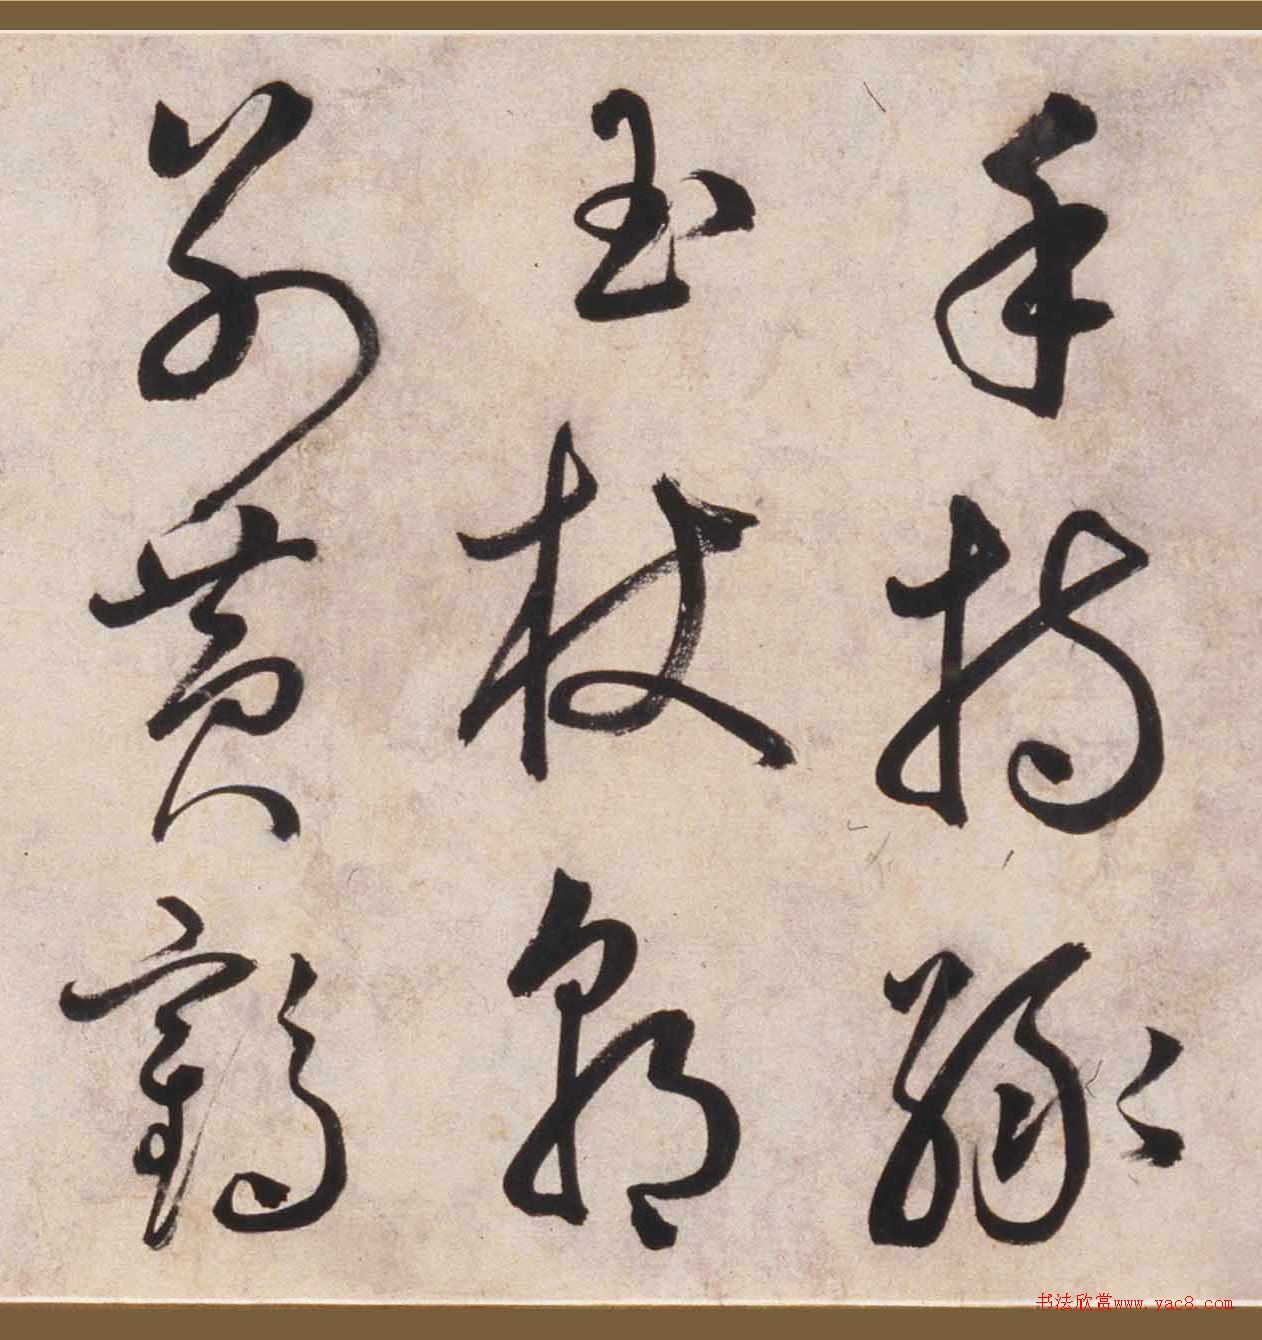 手持綠
玉杖朝
別黃鶴
书法欣赏www.yac8.com